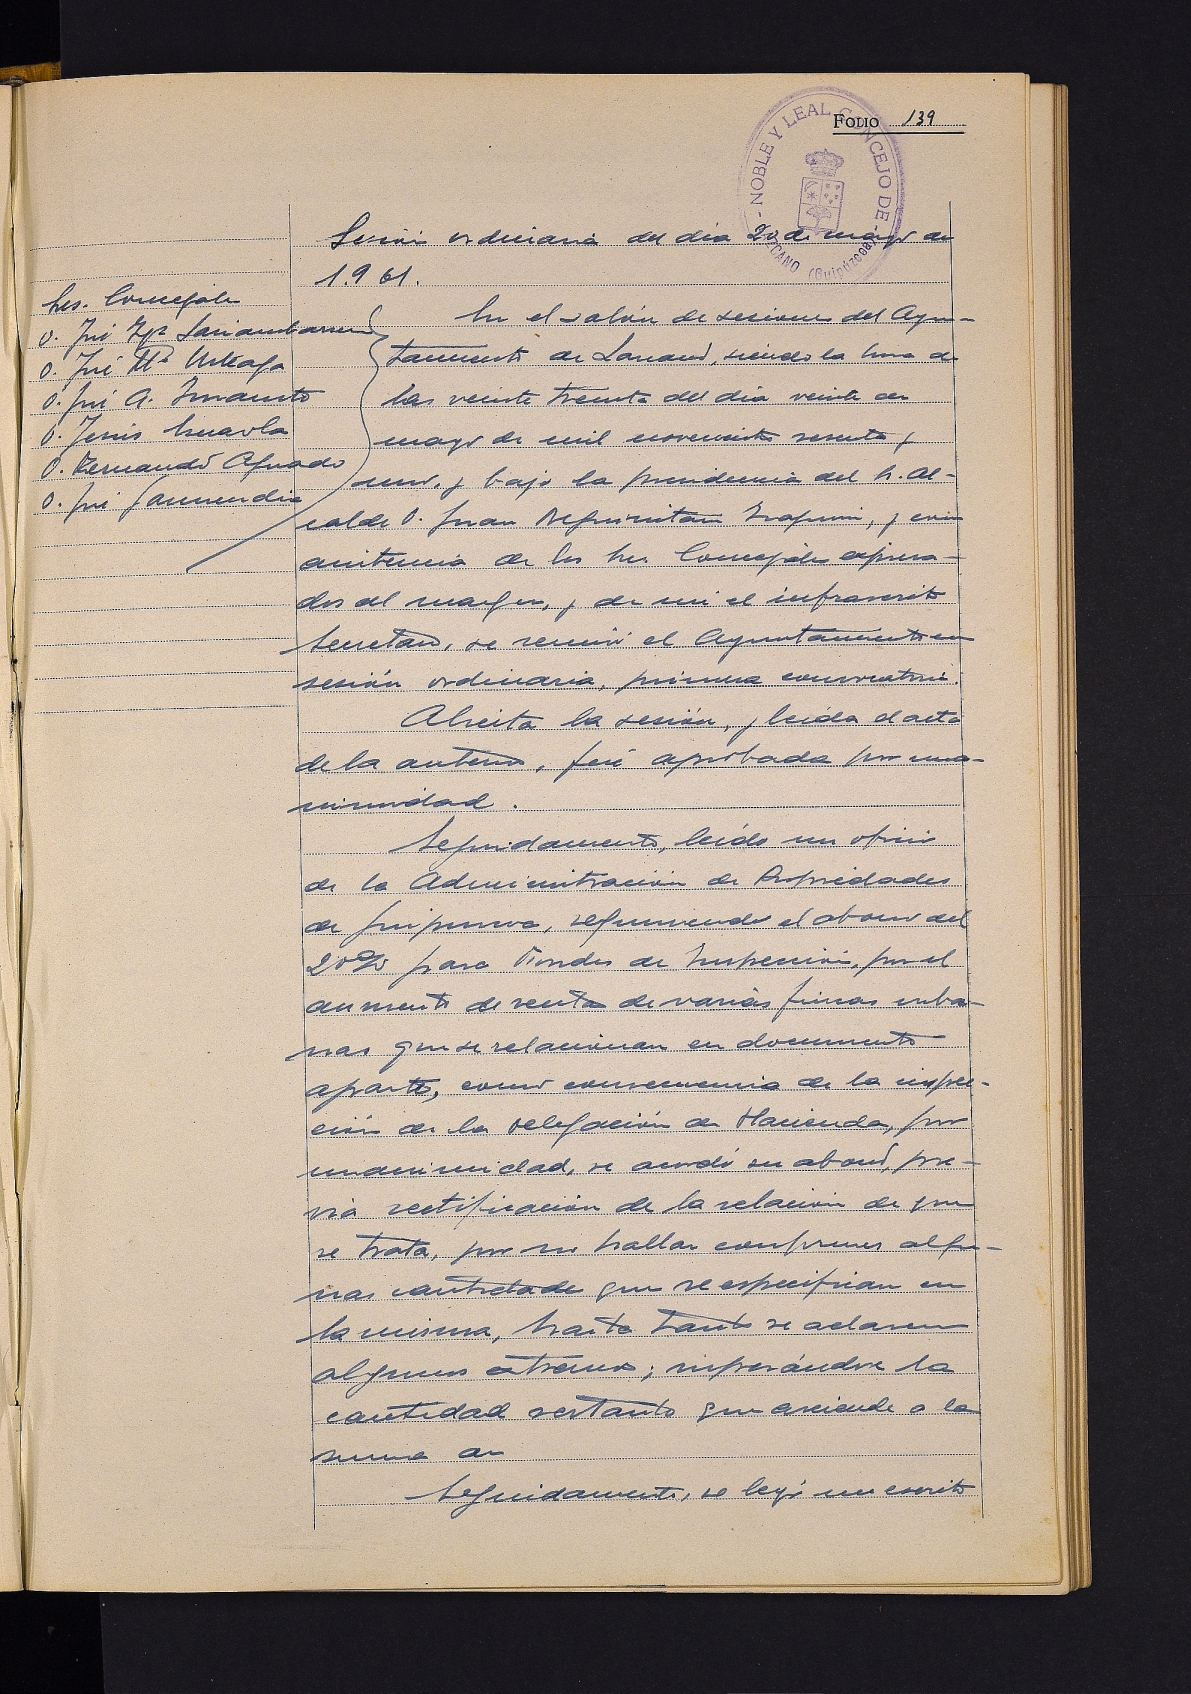 FOLIO 139
- NOBLE Y LEAL CONCEJO DE -
LAZCANO (Guipúzcoa)
Sesión ordinaria del día 20 de mayo de
1.961.
Sres. Concejales
D. José
D. José Mª Urteaga
D. José A.
D. Jesús
D. Fernando Aguado
D. José Garmendia
En el salón de sesiones del Ayun-
tamiento de Lazcano, siendo la hora de
las veinte treinta del día veinte de
mayo de mil novecientos sesenta y
uno, y bajo la presidencia del Sr. Al-
calde D. Juan Irizar, y con
asistencia de los Sres. Concejales expresa-
dos al margen, y de mi el infrascrito
Secretario, se reunió el Ayuntamiento en
sesión ordinaria, primera convocatoria.
Abierta la sesión, y leída el acta
de la anterior, fué aprobada por una-
nimidad.
Seguidamente, leído un oficio
de la Administración de Propiedades
de Guipúzcoa, requiriendo el abono del
20% para Fondos de Inspección, por el
aumento de renta de varias fincas urba-
nas que se relacionan en documento
aparte, como consecuencia de la inspec-
ción de la Delegación de Hacienda, por
unanimidad, se acordó su abono, pre-
via rectificación de la relación de que
se trata, por no hallar conformes algu-
nas cantidades que se especifican en
la misma, hasta tanto se aclaren
algunos extremos; ingresándose la
cantidad restante que asciende a la
suma de
Seguidamente, se leyó un escrito